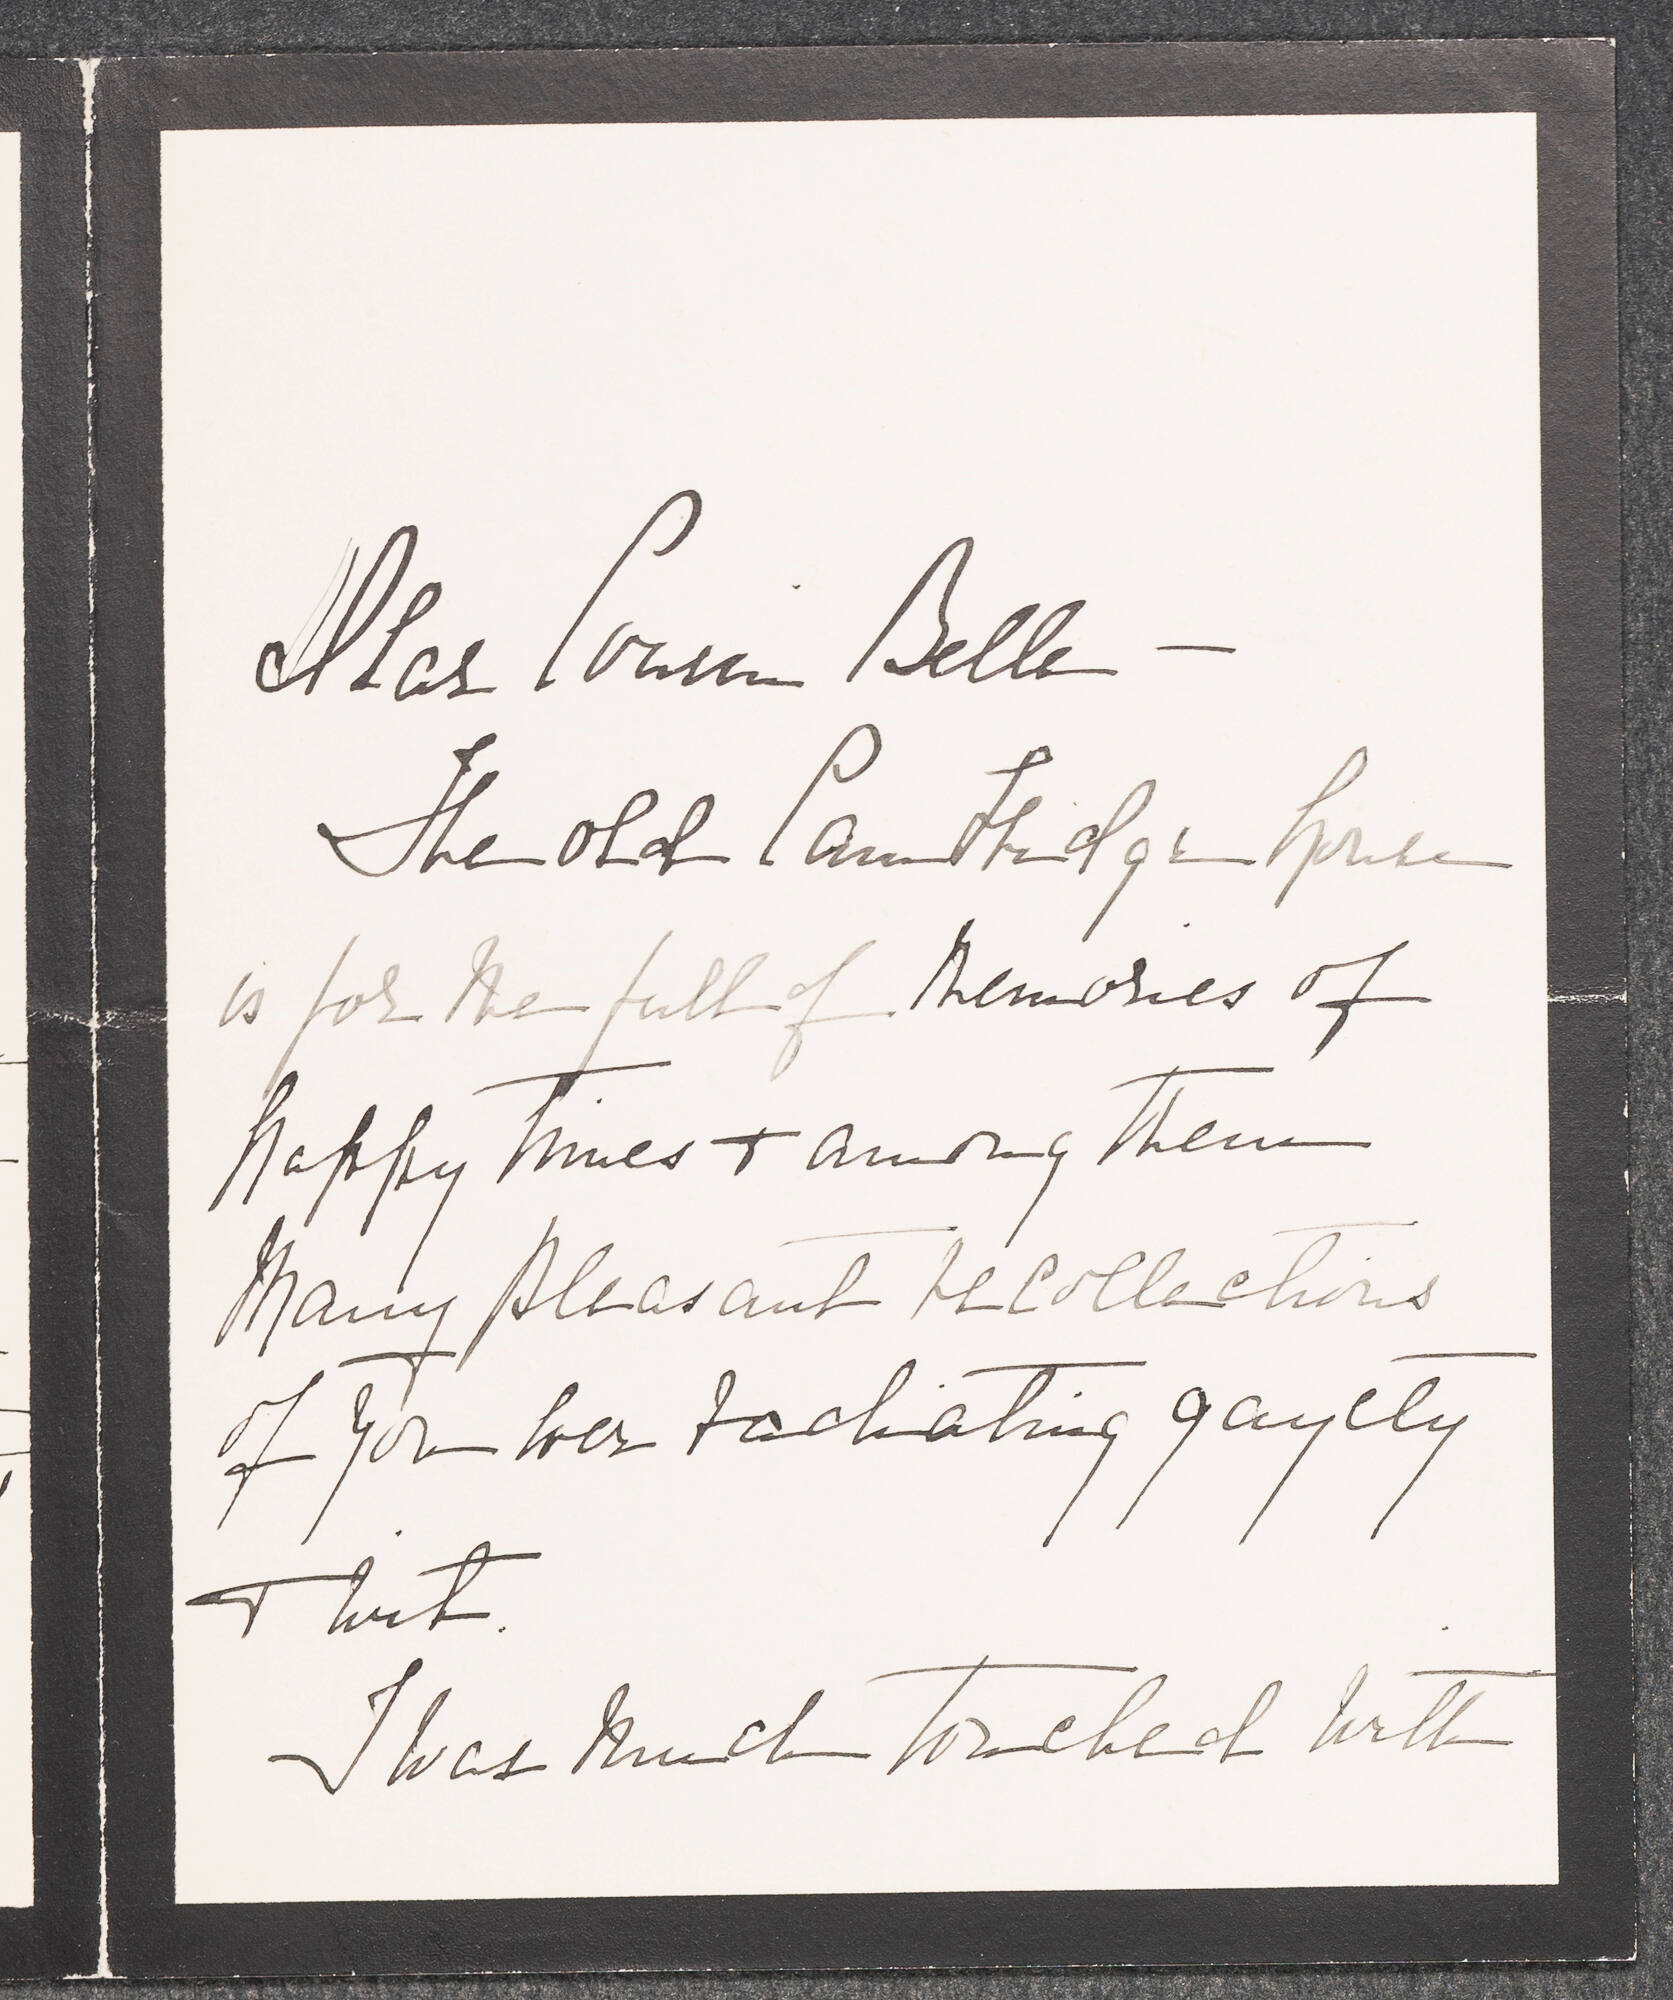 Dear Cousin Belle —
The old Cambridge house
is for me full of memories of
happy times + among them
Many pleasant recollections
of you ever radiating gayety
+ wit.
I was much touched with